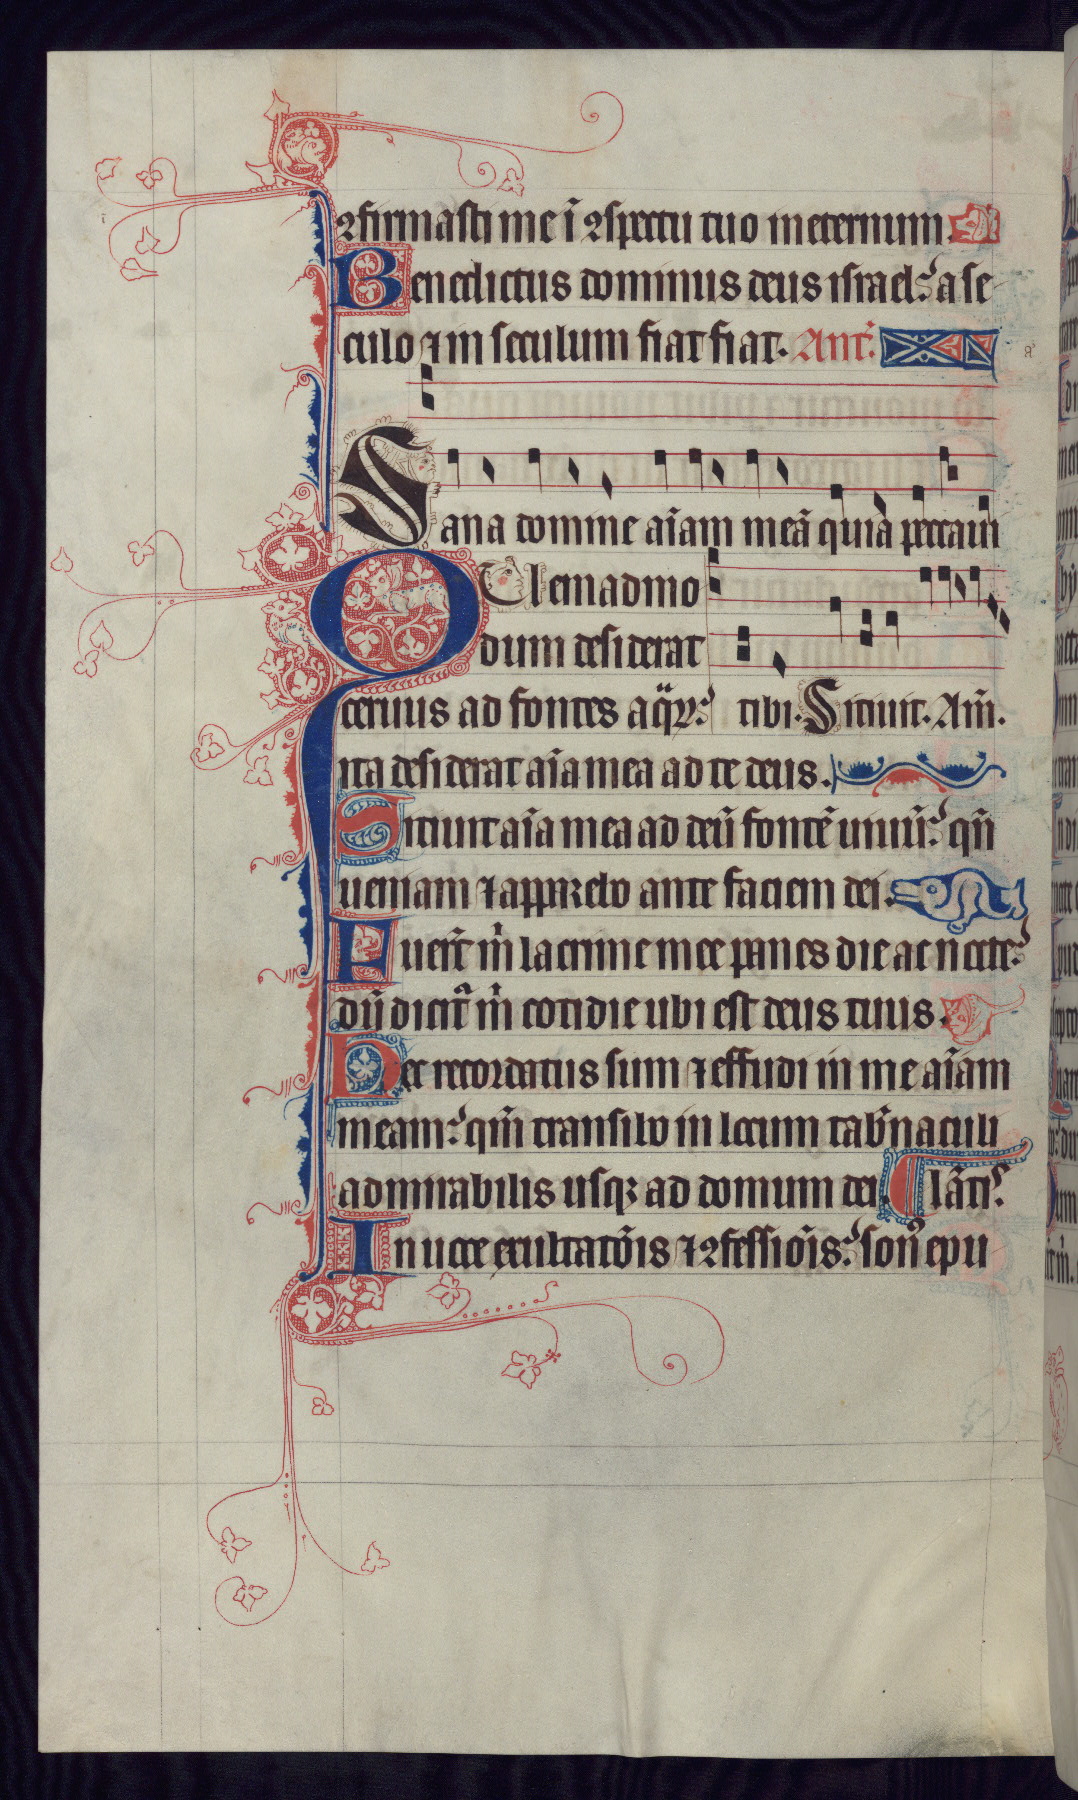 ꝯfirmasti me ī ꝯspectu tuo ineternum
Benedictus dominus deus israel: a se
culo ⁊ in seculum fiat fiat. Ant̄.
Sana domine aīam meā quia peccaui
QUemadmo
dum desiderat
ceruus ad fontes aq̈ꝝ: tibi. Sitiuit. Am̄.
ita desiderat aīa mea ad te deus.
Sitiuit aīa mea ad deū fontē uiuū: qn̄
ueniam ⁊ apparebo ante faciem dei.
Fuer̄t m̄ lacrime mee panes die ac nocte:
dū dicit͛ m̄ cotidie ubi est deus tuus.
Hec recordatus sum ⁊ effudi in me aīam
meam: qm̄ transibo in locum tab̄naculi
admirabilis usqꝫ ad domum dei.
In uoce exultatōis ⁊ ꝯfessiōis: son᷒ epu
lātis: